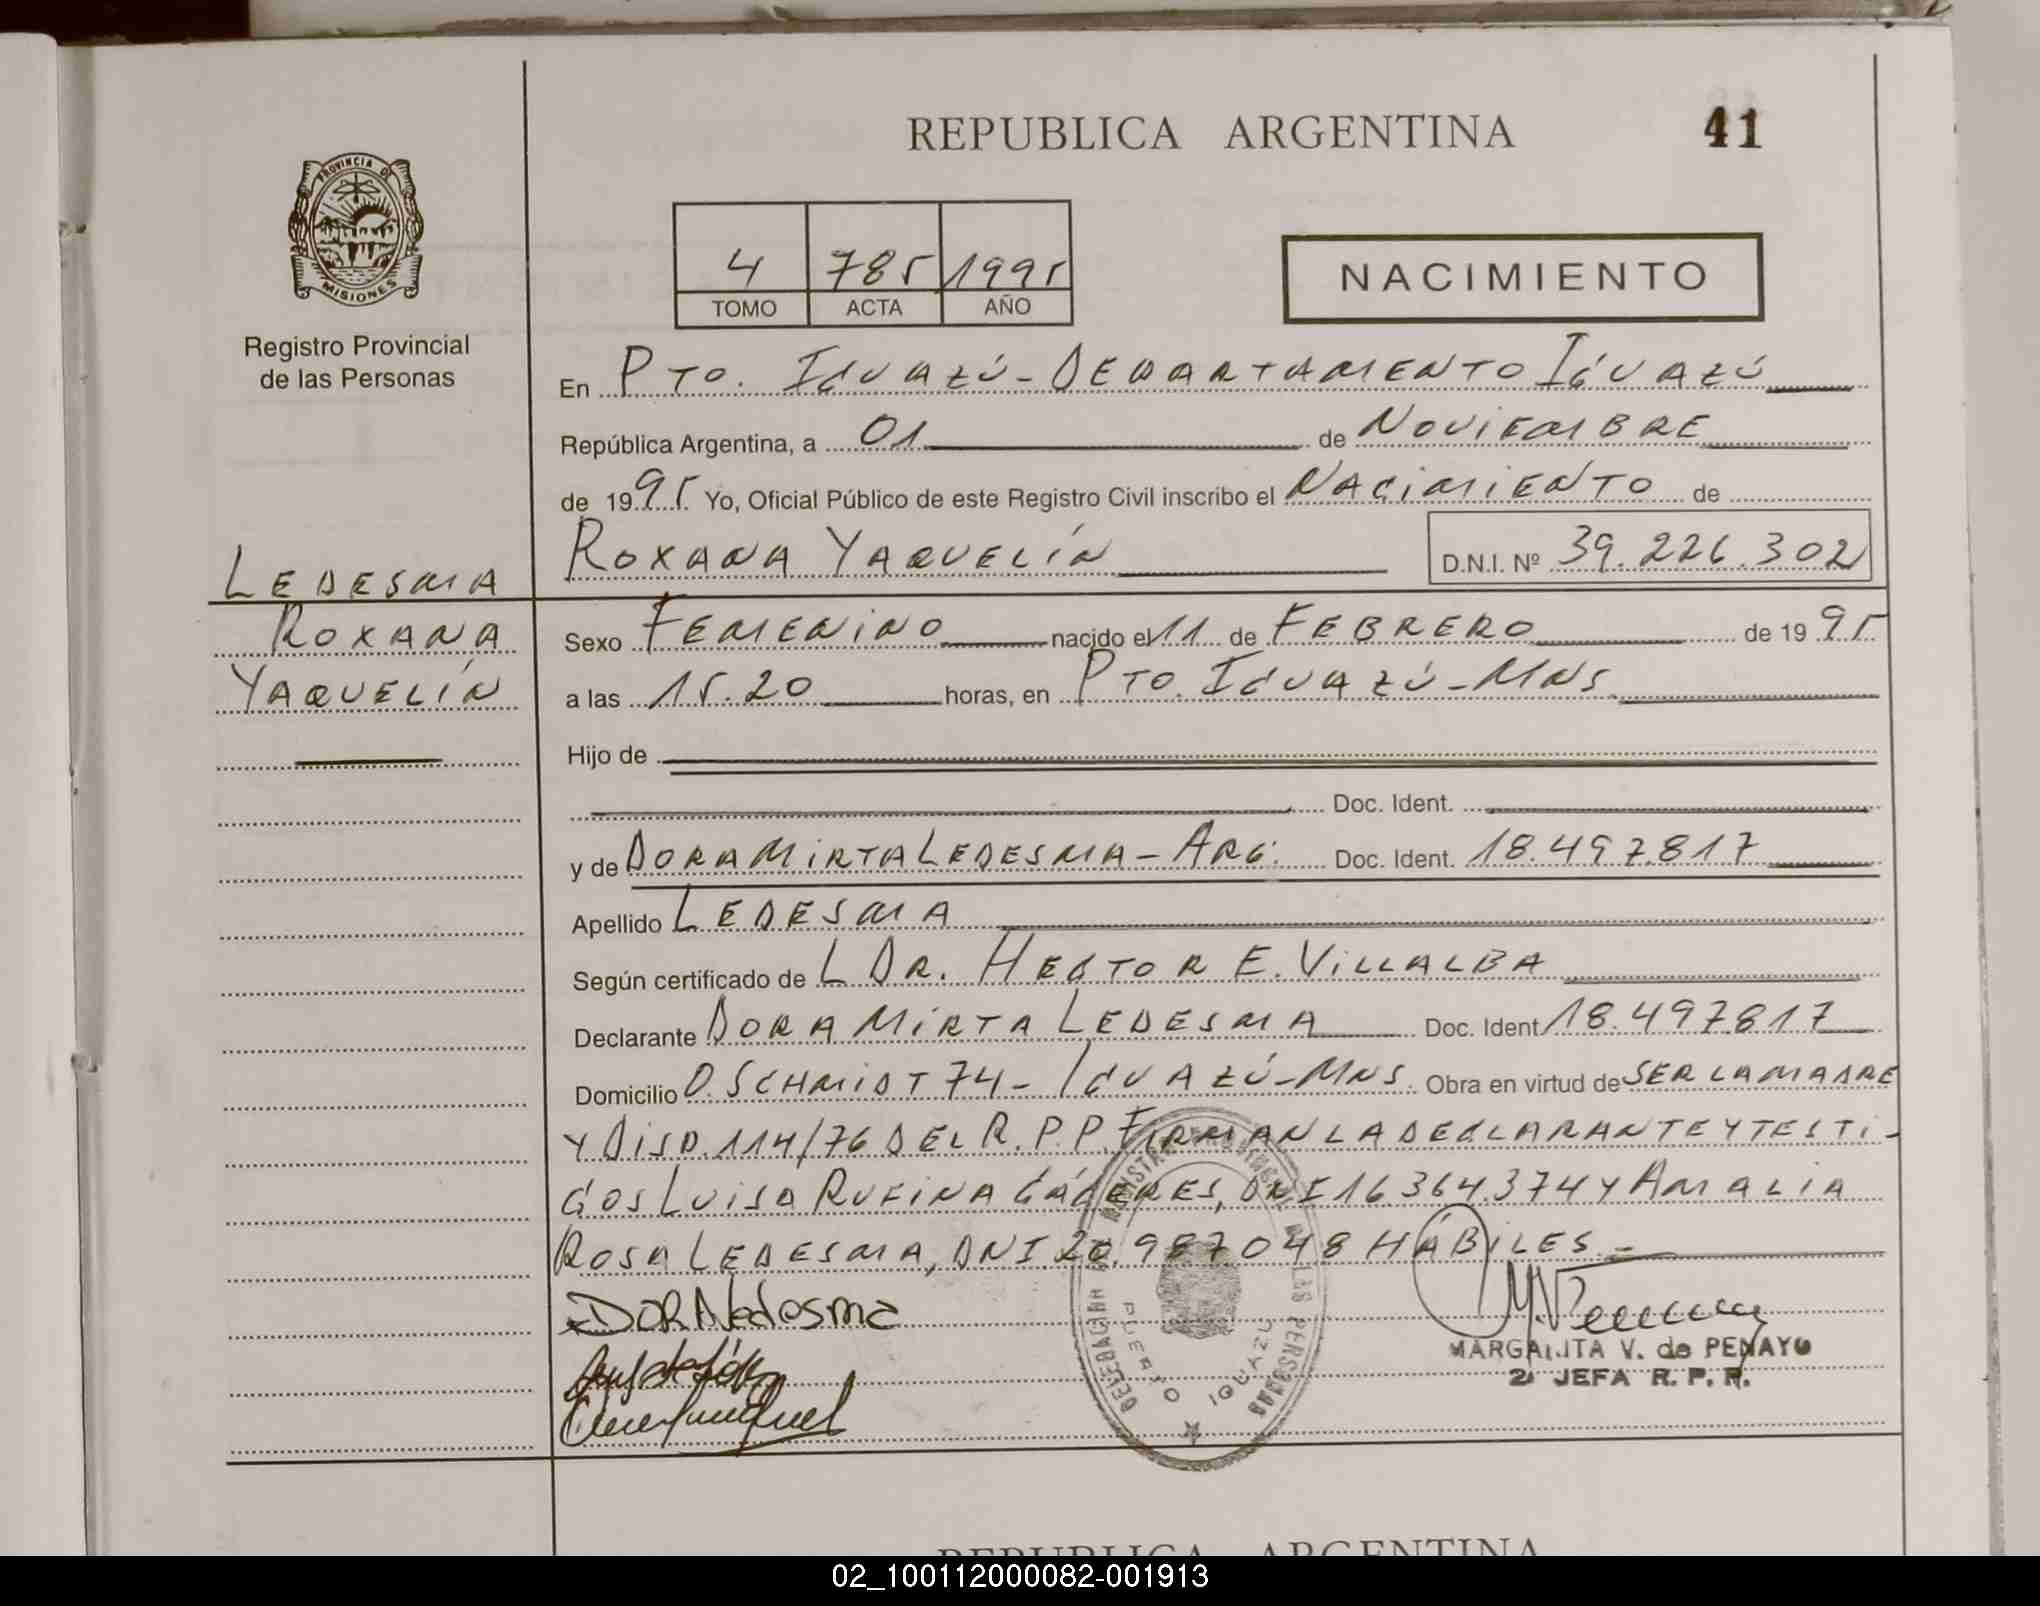 REPUBLICA ARGENTINA 41
PROVINCIA DE
MISIONES
Registro Provincial
de las Personas
4 785 1995
TOMO ACTA AÑO
NACIMIENTO
En PTO. IGUAZÚ - DEPARTAMENTO IGUAZÚ
República Argentina, a 01 de NOVIEMBRE
de 1995 Yo, Oficial Público de este Registro Civil inscribo el NACIMIENTO de
ROXANA YAQUELÍN D.N.I. Nº 39.226.302
LEDESMA
ROXANA
YAQUELÍN
Sexo FEMENINO nacido el 11 de FEBRERO de 1995
a las 15.20 horas, en PTO. IGUAZÚ - MNS
Hijo de
Doc. Ident.
y de DORA MIRTA LEDESMA - ARG. Doc. Ident. 18.497.817
Apellido LEDESMA
Según certificado de L DR. HECTOR E. VILLALBA
Declarante DORA MIRTA LEDESMA Doc. Ident 18.497817
Domicilio O. SCHMIDT 74 - IGUAZÚ - MNS. Obra en virtud de SER LA MADRE
Y DISP. 114/76 DEL R.P.P. FIRMAN LA DECLARANTE Y TESTI-
GOS LUISA RUFINA CÁCERES, DNI 16364.374 Y AMALIA
ROSA LEDESMA, DNI 20.987048 HÁBILES. -
DORA Ledesma
PUERTO IGUAZU
MARGARITA V. de PENAYO
2ª JEFA R. P. P.
REPUBLICA ARGENTINA
02_100112000082-001913